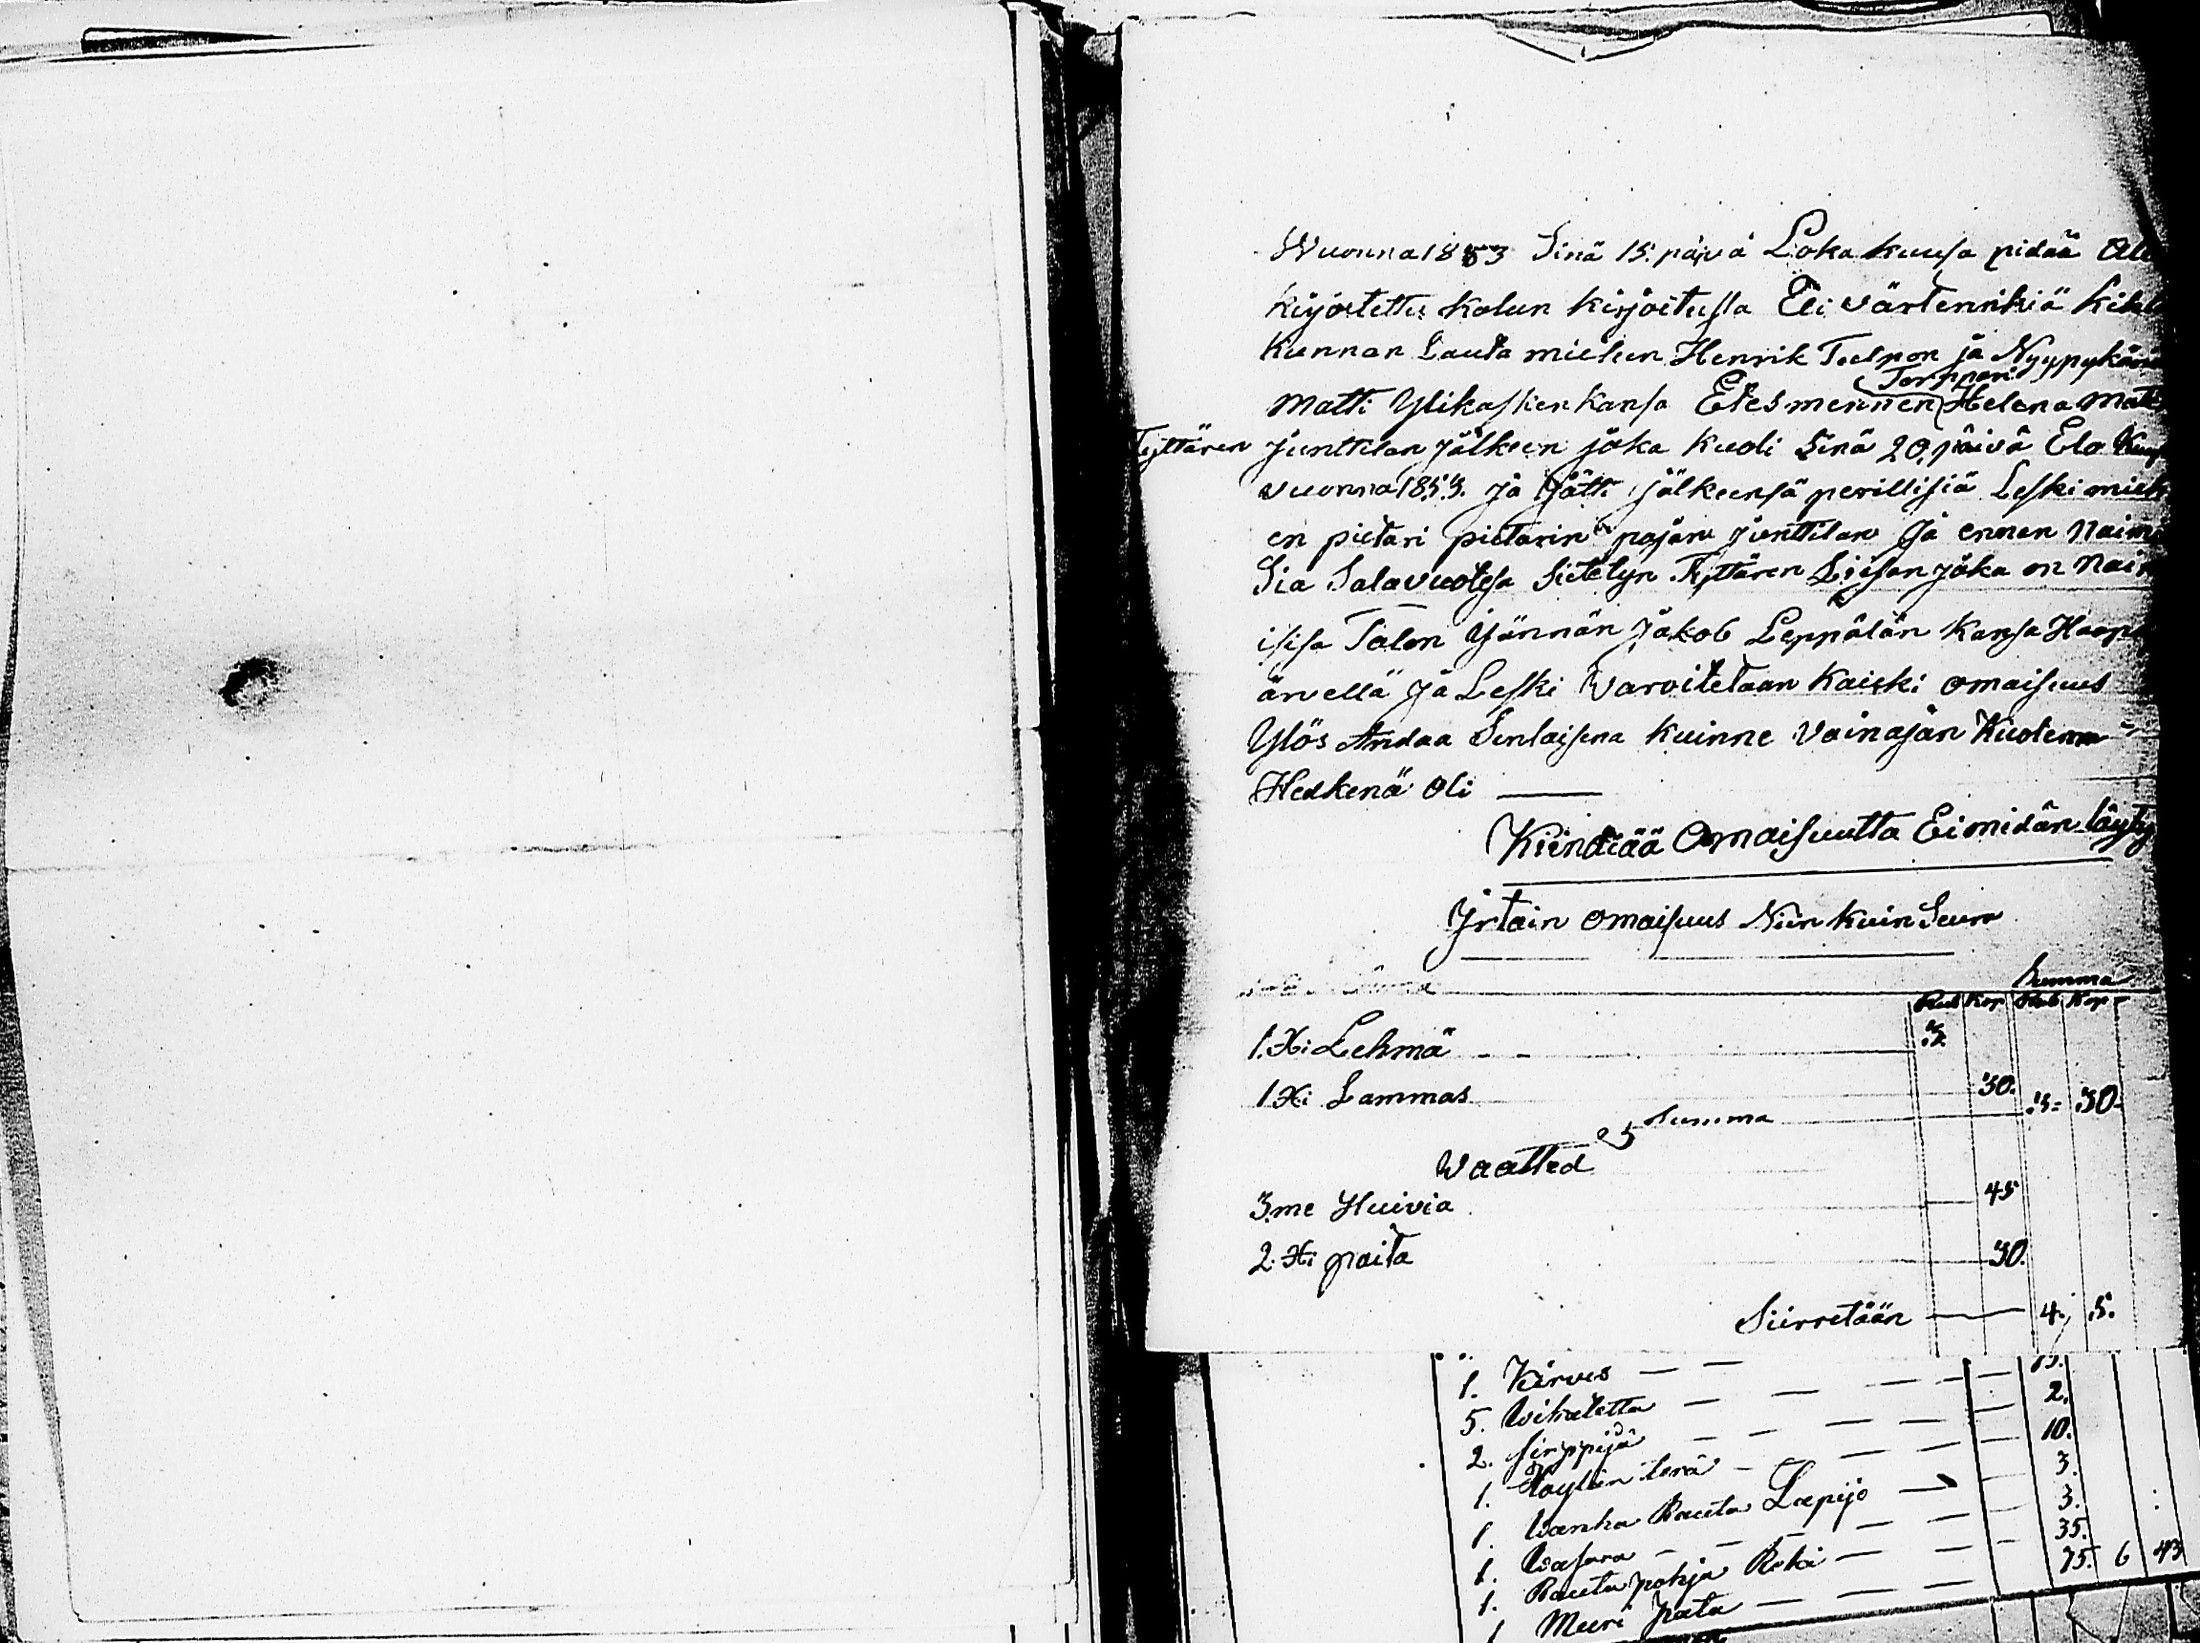 Wuonna 1853 Sinä 15. päivä Loka kuusa pidää Ala
kirjoitettu kalun kirjoitusta Eli värtenrikiä kihla
Kunnan Lauta miehen Henrik Teelpon ja Nyypykän
Torppari
Matti Ylikasken kansa Edesmennen Helena Mati
Tyttären Junttilan jälkeen joka kuoli Sinä 20. päivä Elo Kuusa
vuonna 1853. ja Jätti jälkeensä perillisiä Leski mieh
en pietari pietarin pojan Junttilan ja ennen Naimi
Sia Salavuotesa Sietelyn Tyttären Liisan joka on Naim
isisa Talon Jännän Jakob Leppälän kansa Haapa
ärvellä ja Leski Varoitetaan kaikki omaisuus
Ylös Andaa Senlaisena kuinne Vainajan Kuoleman
Hedkenä oli
Kiindiää Omaisuutta Ei midän löyty
Jrtain omaisuus Niin kuin Seura
Summa
Rub Kop Rub Kop
1. Xi Lehmä 3.
1 Xi Lammas 30. 3. 30.
Summa
Waatted
3.me Huivia 45
2. Xi paita 30.
Siirretään 4. 5.
1. Kirves 15.
5. Wikatetta 2.
2. sirppijä 10.
1. Köylän terä 3.
1. Wanha Rauta Lapijo 3.
1. Wasara 35.
1. Rauta pohja Reki 75. 6 43
1 Muuri pata